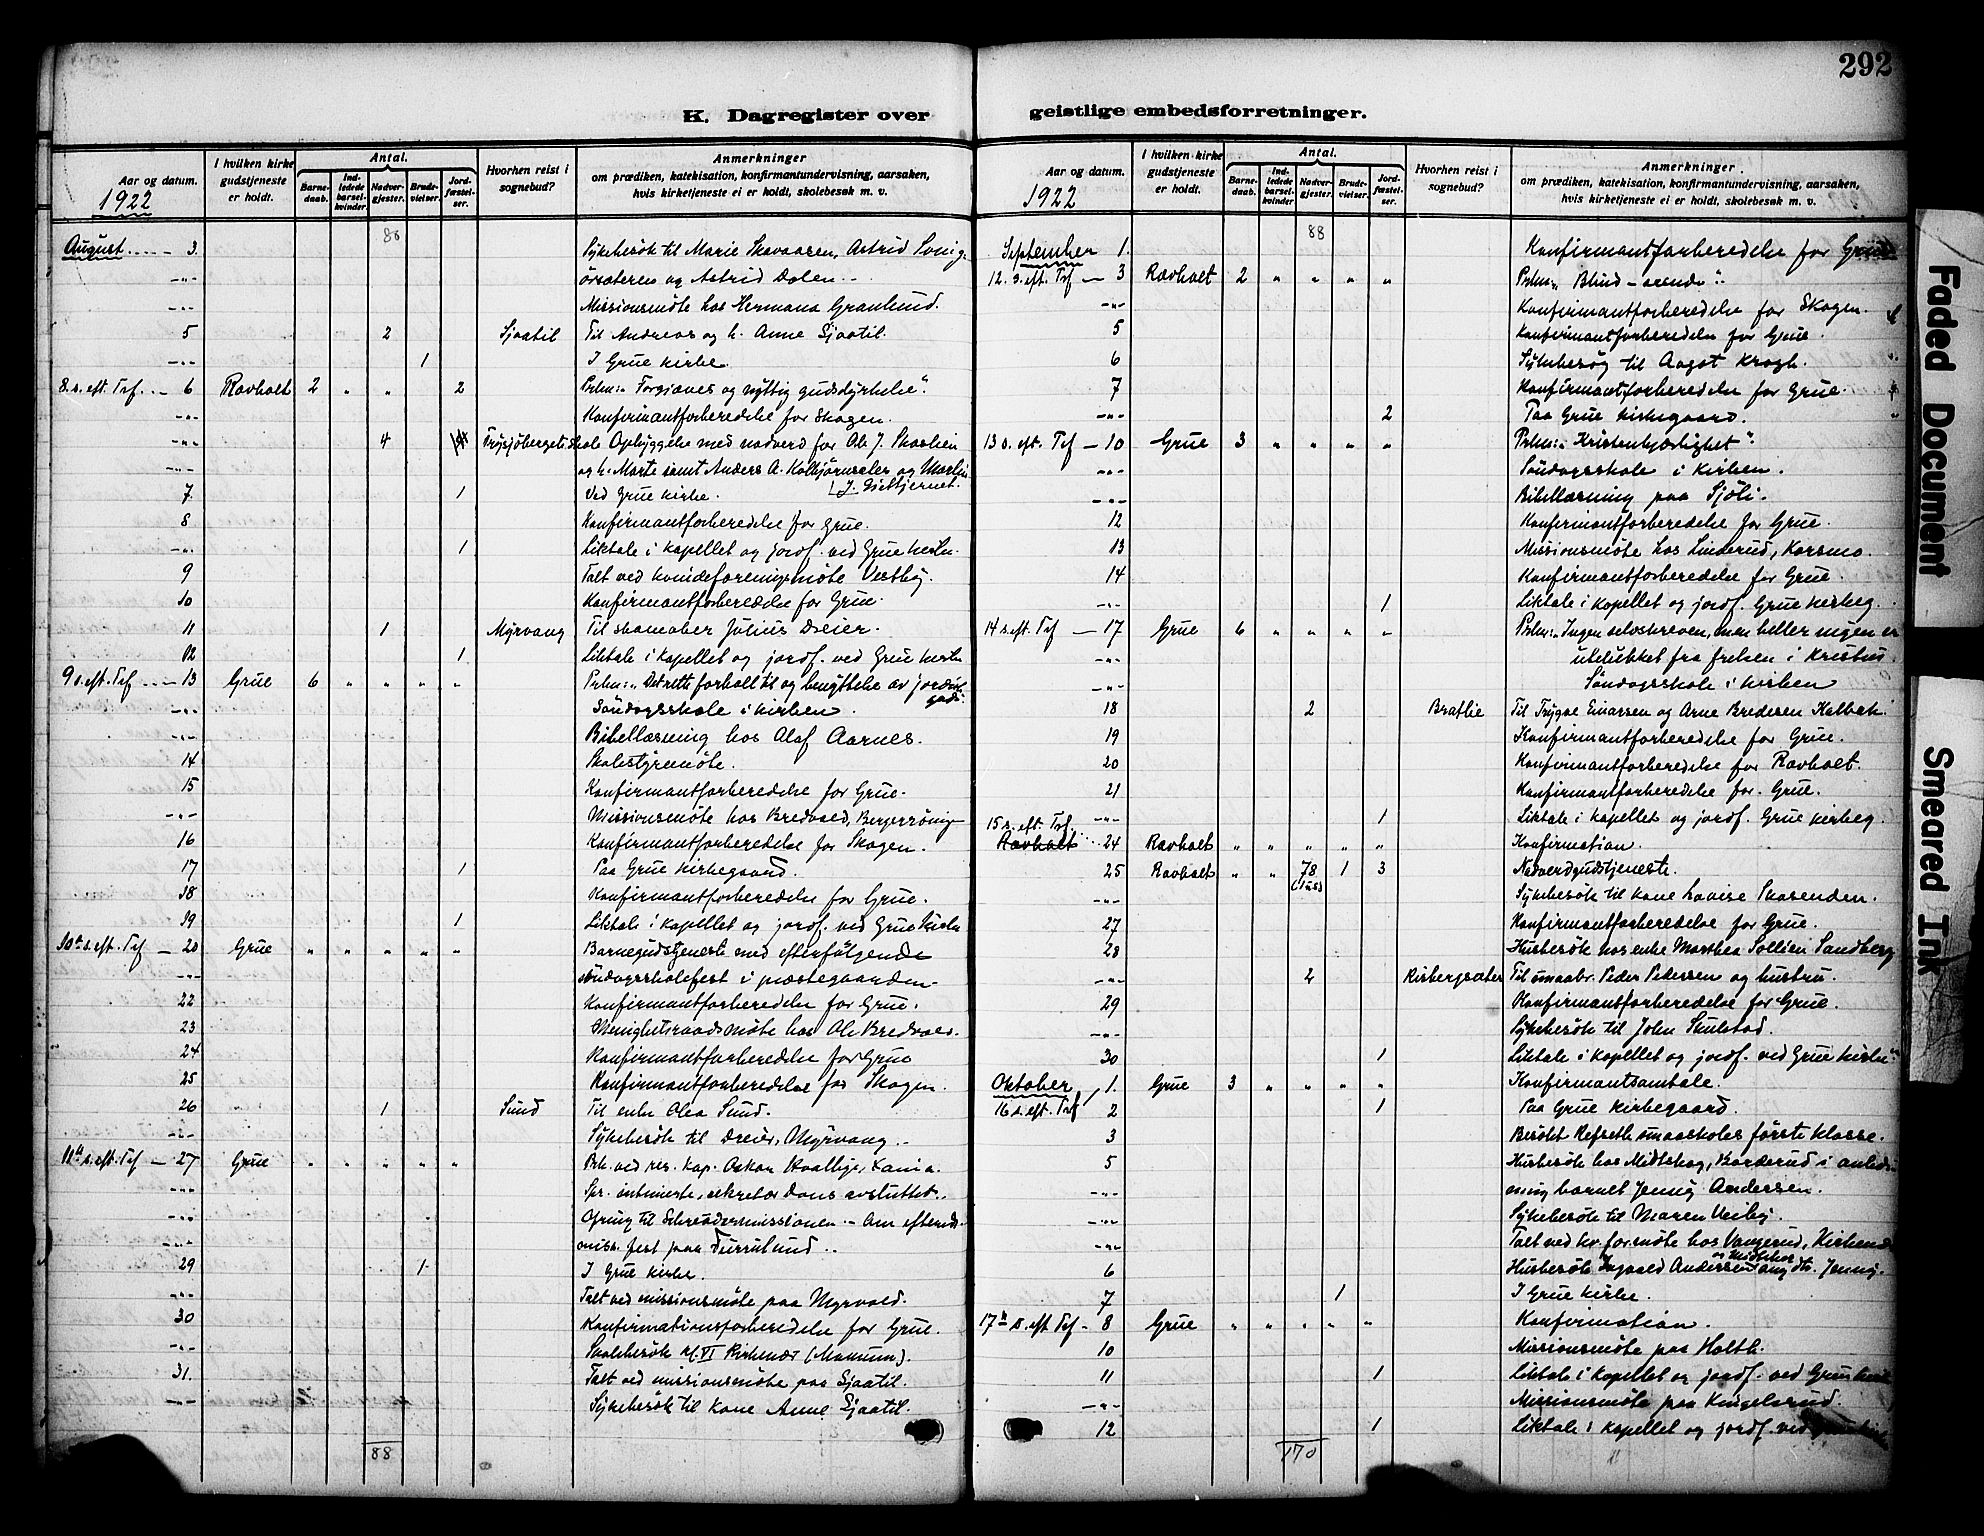 292
K. Dagregister over geistlige embedsforretninger.
Aar og datum.
1922
I hvilken kirke gudstjeneste er holdt.
Antal.
Barnedaab.
Indledede barselkvinder
Nadvergjester.
Brudevielser.
Jordfæstelser.
Hvorhen reist i sognebud?
Anmerkninger
om prædiken, katekisation, konfirmantundervisning, aarsaken,
hvis kirketjeneste ei er holdt, skolebesøk m. v.
80
August 3. Sykebesök til Marie Skavaasen, Astrid
-"- og Astrid Dalen.
-"- Missionsmöte hos Hermana Granlund.
5 2 Sjaatil Til Andreas og h. Anne Sjaatil.
-"- 1 I Grue kirke.
8. s. eft. Trf. 6 Ravholt 2 " " 2 Prkn: "Forgjæves og nyttig gudsdyrkelse".
-"- Konfirmantforberedelse for Skogen.
-"- 4 Opbyggelse med nadverd for Ole J.
-"- og h. Marte samt Anders A. og
7. 1 Ved Grue kirke.
8 Konfirmantforberedelse for Grue.
-"- 1 Liktale i kapellet og jordf. ved Grue kirke.
9 Talt ved kvindeforeningsmöte Vestby.
10 Konfirmantforberedelse for Grue.
11 1 Myrvang Til skomaker Julius Dreier.
12 1 Liktale i kapellet og jordf. ved Grue kirke
9 s. eft. Trf. 13 Grue 6 " " " " Prkn: "Det rette forhold til og benyttelse av jordisk gods.
-"- Söndagsskole i kirken.
-"- Bibellæsning hos Olaf Aarnes.
14 Skolestyremöte.
15 Konfirmantforberedelse for Grue.
-"- Missionsmöte hos Bredvold,
16 Konfirmantforberedelse for Skogen.
17 1 Paa Grue kirkegaard.
18 Konfirmantforberedelse for Grue.
19 1 Liktale i kapellet og jordf. ved Grue kirke
10de s. eft. Trf 20 Grue " " " " " Barnegudstjeneste med efterfölgende
-"- söndagsskolefest i præstegaarden.
22 Konfirmantforberedelse for Grue.
23 Menighetsraadsmöte hos Ole Bredvold.
24 Konfirmantforberedelse for Grue
25 Konfirmantforberedelse for Skogen.
26 1 Sund Til enke Olea Sund.
-"- Sykebesök til Dreier, Myrvang.
11te s. eft. Trf 27 Grue " " " " " ved res. kap. Oskar
-"- sekretær avsluttet.
-"- Ofring til
-"- fest paa
29 1 I Grue kirke.
-"- Talt ved missionsmöte paa Myrvold.
30 Konfirmationsforberedelse for Grue.
-"- Skolebesök kl. VI Kirkenær
31. Talt ved missionsmöte paa Sjaatil.
-"- Sykebesök til kone Anne Sjaatil.
88
Aar og datum.
1922
I hvilken kirke gudstjeneste er holdt.
Antal.
Barnedaab.
Indledede barselkvinder
Nadvergjester.
Brudevielser.
Jordfæstelser.
Hvorhen reist i sognebud?
Anmerkninger.
om prædiken, katekisation, konfirmantundervisning, aarsaken,
hvis kirketjeneste ei er holdt, skolebesøk m. v.
88
September 1. Konfirmantforberedelse for Grue
12. s. eft. Trf 3 Ravholt 2 " " " " Prkn: "Blind - seende".
-"- Konfirmantforberedelse for Skogen.
5 Konfirmantforberedelse for Grue.
6 Sykebesög til Aagot Krogh.
7 Konfirmantforberedelse for Grue.
-"- 2 Paa Grue kirkegaard.
13 s. eft. Trf 10 Grue 3 " " " " Prkn: "Kristenkjærlighet".
-"- Söndagsskole i kirken.
-"- Bibellæsning paa Sjöli.
12 Konfirmantforberedelse for Grue.
13 Missionsmöte hos Linderud, Korsmo.
14 Konfirmantforberedelse for Grue.
-"- 1 Liktale i kapellet og jordf. Grue kirkeg.
14 s. eft. Trf 17 Grue 6 " " " " Prkn: "Ingen selvskreven, men heller ingen er
-"- utelukket fra frelsen i Kristus.
-"- Söndagsskole i kirken
18 2 Bratlie Til Trygve Einarsen og Arne Bredesen
19 Konfirmantforberedelse for Grue.
20 Konfirmantforberedelse for Ravholt.
21 Konfirmantforberedelse for Grue.
-"- 1 Liktale i kapellet og jordf. Grue kirkeg.
15 s. eft. Trf
Ravholt 24 Ravholt " " " " " Konfirmation.
25 Ravholt " " 78 1 3 Nadverdgudstjeneste.
-"- Sykebesök til kone Lovise Skasenden.
27 Konfirmantforberedelse for Grue.
28 Husbesök hos enke Marthea Sollien Sandberg
-"- 2 Kirkergsæter Til smaabr. Peder Pedersen og hustru.
29 Konfirmantforberedelse for Grue.
-"- Sykebesök til John Skulstad.
30 1 Liktale i kapellet og jordf. ved Grue kirke.
Oktober 1. Grue 3 " " " " Konfirmantsamtale.
16 s. eft. Trf 2 1 Paa Grue kirkegaard.
3 Besökt Refseth smaaskoles förste klasse.
5 Husbesök hos Midtskog, Borderud i anled-
-"- ning barnet Jenny Andersen.
-"- Sykebesök til Maren Veiby.
-"- Talt ved kv. for. möte hos Vangerud, Kirkenær
6 Husbesök Ingvald Andersen Midtskog ang. dtr. Jenny.
7 1 I Grue kirke.
17de s. eft. Trf. 8 Grue " " " " " Konfirmation.
10 Missionsmöte paa Holth.
11 1 Liktale i kapellet og jordf. ved Grue kirke
-"- Missionsmöte paa Kingelsrud.
12 1 Liktale i kapellet og jordf. ved
170
Faded Document
Smeared Ink